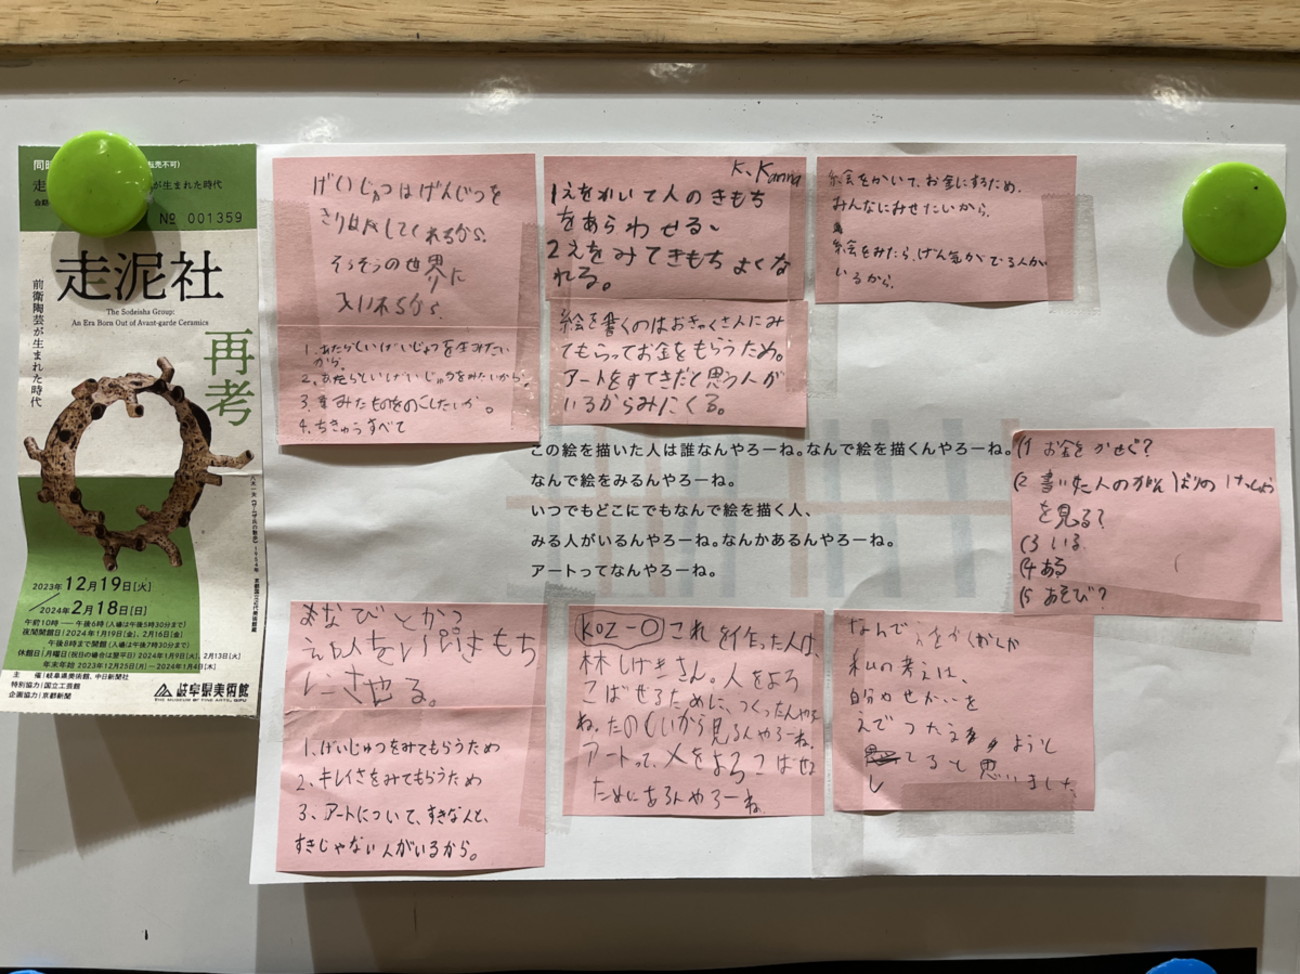 転売不可)
が生まれた時代
№ 001359
走泥社
再考
前衛陶芸が生まれた時代
The Sodeisha Group:
An Era Born Out of Avant-garde Ceramics
2023年12月19日[火]
2024年2月18日[日]
午前10時―午後6時(入場は午後5時30分まで)
夜間開館日|2024年1月19日[金]、2月16日[金]
午後8時まで開館(入場は午後7時30分まで)
休館日|月曜日(祝日の場合は翌平日) 2024年1月9日[火]、2月13日[火]
年末年始 2023年12月25日[月]―2024年1月4日[木]
主 催|岐阜県美術館、中日新聞社
特別協力|国立工芸館
企画協力|京都新聞
岐阜県美術館
THE MUSEUM OF FINE ARTS, GIFU
げいじゅつはげんじつを
きりはなしてくれるから。
そうぞうの世界に
入れるから。
1、あたらしいげいじゅつを生みたい
から。
2、あたらしいげいじゅつをみたいから。
3、
4、ちきゅうすべて
K、Kanna
1えをかいて人のきもち
をあらわせる、
2えをみてきもちよくな
れる。
絵を書くのはおきゃくさんにみ
てもらってお金をもらうため。
アートをすてきだと思う人が
いるからみにくる。
絵をかいて、お金にするため。
みんなにみせたいから。
絵をみたら、げん気がでる人が
いるから。
この絵を描いた人は誰なんやろーね。なんで絵を描くんやろーね。
なんで絵をみるんやろーね。
いつでもどこにでもなんで絵を描く人、
みる人がいるんやろーね。なんかあるんやろーね。
アートってなんやろーね。
(1 お金をかせぐ?
(2 書いた人のがんばりのけっしょう
を見る?
(3 いる
(4 ある
(5 あそび?
まなびとかつ
きもち
にさせる。
1、げいじゅつをみてもらうため
2、キレイさをみてもらうため
3、アートについて、すきな人と、
すきじゃない人がいるから。
KOZ-O これを作った人は、
林しげきさん。人をよろ
こばせるために、つくったんやろー
ね。たのしいから見るんやろーね。
アートって、人をよろこばせる
ためにあるんやろーね
なんで
私の考えは、
自分のせかいを
えでつたえ ようと
してると思いました。